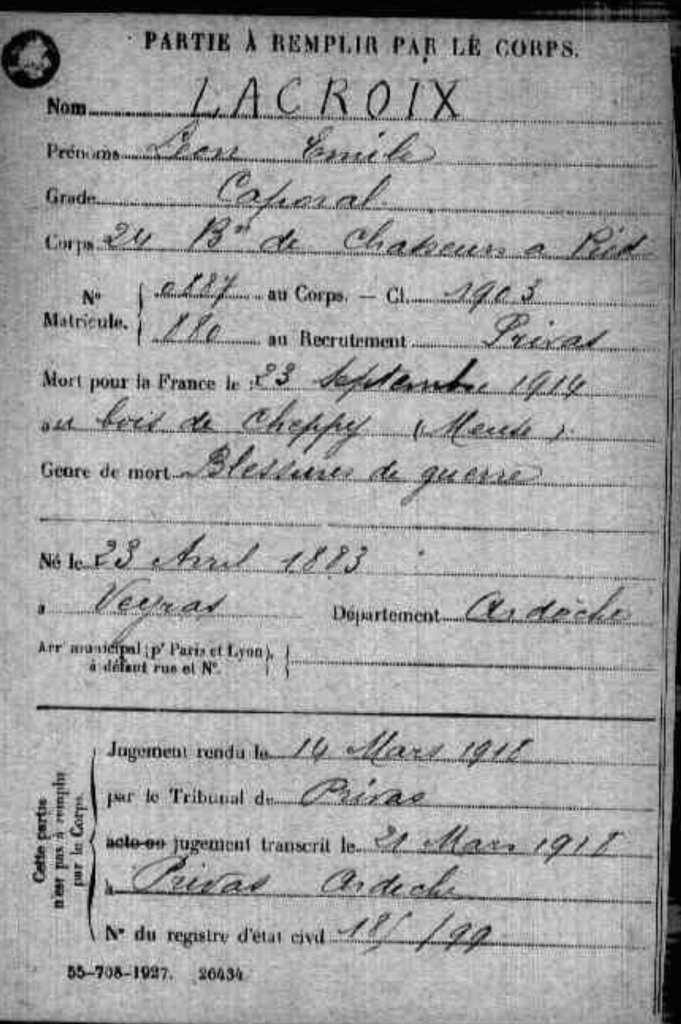 PARTIE À REMPLIR PAR LE CORPS.
Nom LACROIX
Prénoms Léon Emile
Grade Caporal
Corps 24 Bon de Chasseurs a Pied
No Matricule. { 0887 au Corps. — Cl. 1903
880 au Recrutement Privas
Mort pour la France le 23 Septembre 1914
au bois de Cheppy (Meuse)
Genre de mort Blessures de guerre
Né le 23 Avril 1883
à Veyras Département Ardèche
Arr municipal (pr Paris et Lyon), à défaut rue et No. {
Cette partie n'est pas à remplir par le Corps.
Jugement rendu le 14 Mars 1918
par le Tribunal de Privas
acte ou jugement transcrit le 21 Mars 1918
à Privas Ardeche
No du registre d'état civil /99
55-708-1927. 26434